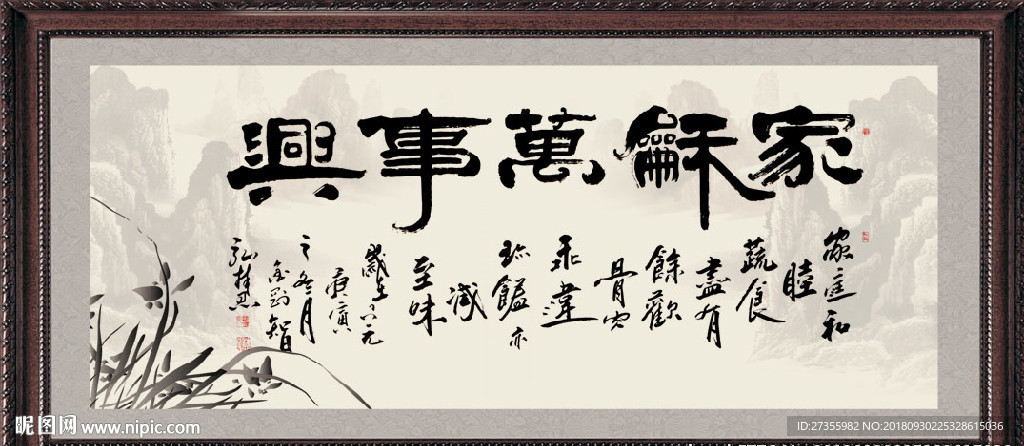 家龢萬事興
家庭和
睦
蔬食
盡有
餘歡
骨肉
乖違
珍饈亦
減
至味
歲在
庚寅
之冬月
昵图网
www.nipic.com
ID:27355982 NO:20180930225328615036